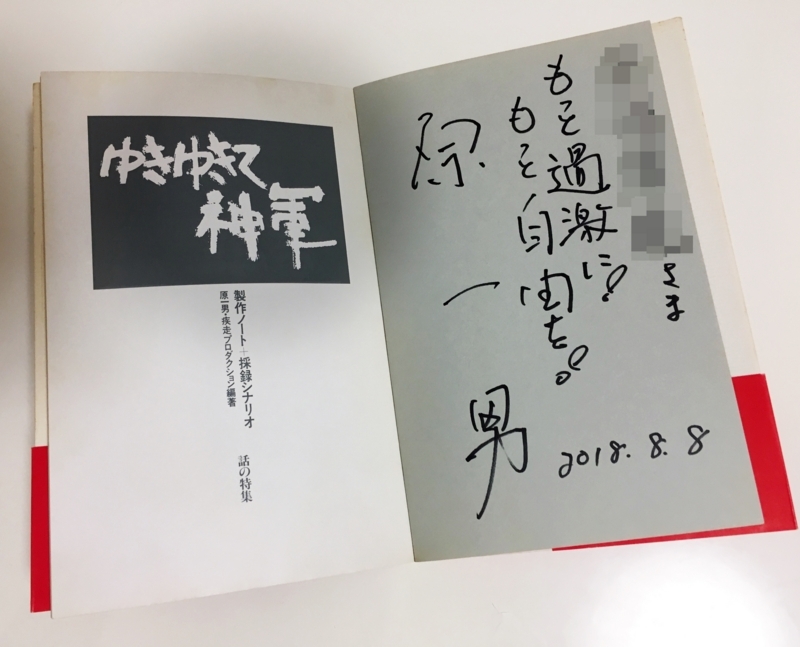 さま
もっと過激に!
もっと自由を!
原一男
2018.8.8
ゆきゆきて
神軍
製作ノート+採録シナリオ
原一男・疾走プロダクション編著
話の特集